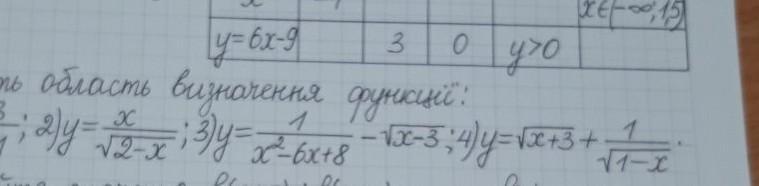 x∈(-∞; 1,5)
y=6x-9 3 0 y>0
область визначення функції:
; 2) y = x/√(2-x) ; 3) y = 1/(x²-6x+8) - √(x-3) ; 4) y = √(x+3) + 1/√(1-x) .